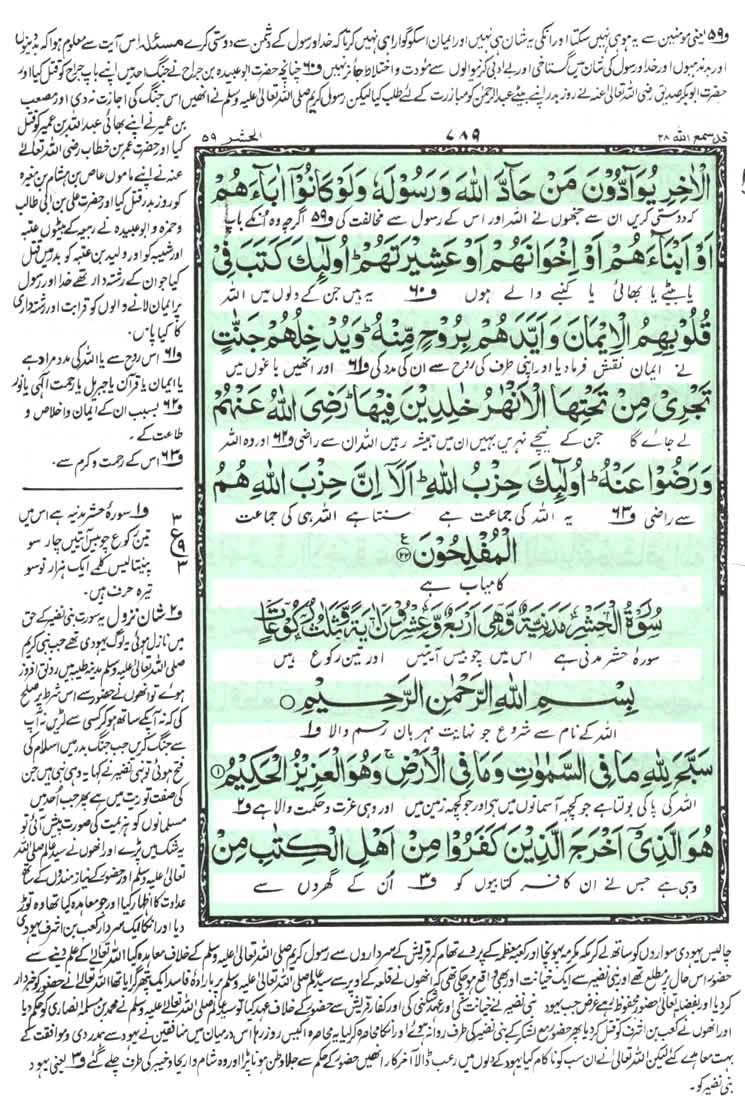 و۵۹ یعنی مومنین سے یہ ہو ہی نہیں سکتا اور انکی یہ شان ہی نہیں اور ایمان اسکو گوارا ہی نہیں کرتا کہ خدا اور رسول کے دشمن سے دوستی کرے مسئلہ اس آیت سے معلوم ہوا کہ بددینوں
اور بدمذہبوں اور خدا اور رسول کی شان میں گستاخی اور بے ادبی کرنیوالوں سے مودت و اختلاط جائز نہیں و۶۰ چنانچہ حضرت ابوعبیدہ بن جراح نے جنگ احد میں اپنے باپ جراح کو قتل کیا اور
حضرت ابوبکر صدیق رضی اللہ تعالیٰ عنہ نے روز بدر اپنے بیٹے عبدالرحمن کو مبارزت کے لئے طلب کیا لیکن رسول کریم صلی اللہ تعالیٰ علیہ وسلم نے انھیں اس جنگ کی اجازت نہ دی اور مصعب
قد سمع اللہ ۲۸
۷۸۹
الحشر ۵۹
الْاٰخِرِ یُوَآدُّوْنَ مَنْ حَآدَّ اللّٰهَ وَرَسُوْلَهٗ وَلَوْ كَانُوْۤا اٰبَآءَهُمْ
کہ دوستی کریں ان سے جنھوں نے اللہ اور اس کے رسول سے مخالفت کی و۵۹ اگرچہ وہ انکے باپ
اَوْ اَبْنَآءَهُمْ اَوْ اِخْوَانَهُمْ اَوْ عَشِیْرَتَهُمْ ؕ اُولٰٓىِٕكَ كَتَبَ فِیْ
یا بیٹے یا بھائی یا کنبے والے ہوں و۶۰ یہ ہیں جن کے دلوں میں اللہ
قُلُوْبِهِمُ الْاِیْمَانَ وَاَیَّدَهُمْ بِرُوْحٍ مِّنْهُ ؕ وَیُدْخِلُهُمْ جَنّٰتٍ
نے ایمان نقش فرمادیا اور اپنی طرف کی روح سے ان کی مدد کی و۶۱ اور انھیں باغوں میں
تَجْرِیْ مِنْ تَحْتِهَا الْاَنْهٰرُ خٰلِدِیْنَ فِیْهَا ؕ رَضِیَ اللّٰهُ عَنْهُمْ
لے جائے گا جن کے نیچے نہریں بہیں ان میں ہمیشہ رہیں اللہ ان سے راضی و۶۲ اور وہ اللہ
وَرَضُوْا عَنْهُ ؕ اُولٰٓىِٕكَ حِزْبُ اللّٰهِ ؕ اَلَاۤ اِنَّ حِزْبَ اللّٰهِ هُمُ
سے راضی و۶۳ یہ اللہ کی جماعت ہے سنتا ہے اللہ ہی کی جماعت
الْمُفْلِحُوْنَ ﴿۲۲﴾
کامیاب ہے
سُوْرَةُ الْحَشْرِ مَدَنِیَّةٌ وَّهِیَ اَرْبَعٌ وَّعِشْرُوْنَ اٰیَةً وَّثَلٰثُ رُكُوْعَاتٍ
سورۂ حشر مدنی ہے اس میں چوبیس آیتیں اور تین رکوع ہیں
بِسْمِ اللّٰهِ الرَّحْمٰنِ الرَّحِیْمِ
اللہ کے نام سے شروع جو نہایت مہربان رحم والا و۱
سَبَّحَ لِلّٰهِ مَا فِی السَّمٰوٰتِ وَمَا فِی الْاَرْضِ ۚ وَهُوَ الْعَزِیْزُ الْحَكِیْمُ ﴿۱﴾
اللہ کی پاکی بولتا ہے جو کچھ آسمانوں میں ہے اور جو کچھ زمین میں اور وہی عزت و حکمت والا ہے و۲
هُوَ الَّذِیْۤ اَخْرَجَ الَّذِیْنَ كَفَرُوْا مِنْ اَهْلِ الْكِتٰبِ مِنْ
وہی ہے جس نے ان کافر کتابیوں کو و۳ اُن کے گھروں سے
بن عمیر نے اپنے بھائی عبداللہ بن عمیر کو قتل
کیا اور حضرت عمر بن خطاب رضی اللہ تعالیٰ
عنہ نے اپنے ماموں عاص بن ہشام بن مغیرہ
کو روز بدر قتل کیا اور حضرت علی بن ابی طالب
و حمزہ و ابوعبیدہ نے ربیعہ کے بیٹوں عتبہ
اور شیبہ کو اور ولید بن عتبہ کو بدر میں قتل
کیا جو ان کے رشتہ دار تھے خدا اور رسول
پر ایمان لانے والوں کو قرابت اور رشتہ داری
کا کیا پاس۔
و۶۱ اس روح سے یا اللہ کی مدد مراد ہے
یا ایمان یا قرآن یا جبریل یا رحمت الٰہی یا نور
و۶۲ بسبب ان کے ایمان و اخلاص و
طاعت کے۔
و۶۳ اس کے رحمت و کرم سے۔
۳
ع
۹
۳
و۱ سورۂ حشر مدنیہ ہے اس میں
تین رکوع چوبیس آیتیں چار سو
پینتالیس کلمے ایک ہزار نو سو
تیرہ حرف ہیں۔
و۲ شان نزول یہ سورت بنی نضیر کے حق
میں نازل ہوئی یہ لوگ یہودی تھے جب نبی کریم
صلی اللہ تعالیٰ علیہ وسلم مدینہ طیبہ میں رونق افروز
ہوئے تو انھوں نے حضور سے اس شرط پر صلح
کی کہ نہ آپ کے ساتھ ہو کر کسی سے لڑیں نہ آپ
سے جنگ کریں جب جنگ بدر میں اسلام کی
فتح ہوئی تو بنی نضیر نے کہا یہ وہی نبی ہیں جن
کی صفت توریت میں ہے پھر جب اُحد میں
مسلمانوں کو ہزیمت کی صورت پیش آئی تو
یہ شک میں پڑے اور انھوں نے سید عالم صلی اللہ
تعالیٰ علیہ وسلم اور حضور کے نیاز مندوں کے ساتھ
عداوت کا اظہار کیا اور جو معاہدہ کیا تھا وہ توڑ
دیا اور انکا ایک سردار کعب بن اشرف یہودی
چالیس یہودی سواروں کو ساتھ لے کر مکہ مکرمہ پہونچا اور کعبہ معظمہ کے پردے تھام کر قریش کے سرداروں سے رسول کریم صلی اللہ تعالیٰ علیہ وسلم کے خلاف معاہدہ کیا اللہ تعالیٰ کے علم دینے سے
حضور اس حال پر مطلع تھے اور بنی نضیر سے ایک خیانت اور بھی واقع ہو چکی تھی کہ انھوں نے قلعہ کے اوپر سے سید عالم صلی اللہ تعالیٰ علیہ وسلم پر بارادۂ فاسد ایک پتھر گرایا تھا اللہ تعالیٰ نے حضور کو خبردار
کر دیا اور بفضلہ تعالیٰ حضور محفوظ رہے غرض جب یہود بنی نضیر نے خیانت کی اور عہد شکنی کی اور کفار قریش سے حضور کے خلاف عہد کیا تو سید عالم صلی اللہ تعالیٰ علیہ وسلم نے محمد بن مسلمہ انصاری کو حکم دیا
اور انھوں نے کعب بن اشرف کو قتل کر دیا پھر حضور مع لشکر کے بنی نضیر کی طرف روانہ ہوئے اور انکا محاصرہ کر لیا یہ محاصرہ اکیس روز رہا اس درمیان میں منافقین نے یہود سے ہمدردی و موافقت کے
بہت معاہدے کئے لیکن اللہ تعالیٰ نے ان سب کو ناکام کیا یہود کے دلوں میں رعب ڈالا آخرکار انھیں حضور کے حکم سے جلاوطن ہونا پڑا اور وہ شام و اریحا و خیبر کی طرف چلے گئے و۳ یعنی یہود
بنی نضیر کو۔